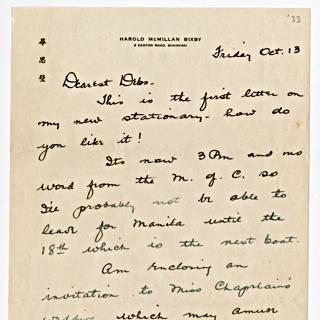 '33
畢
思
HAROLD McMILLAN BIXBY
3 CANTON ROAD, SHANGHAI
Friday Oct. 13
Dearest Debs.
This is the first letter on
my new stationary - how do
you like it!
Its now 3 Pm and no
word from the M. of C. so
I'll probably not be able to
leave for Manila until the
18th which is the next boat.
Am enclosing an
invitation to Miss Chaplain's
wedding which may amuse